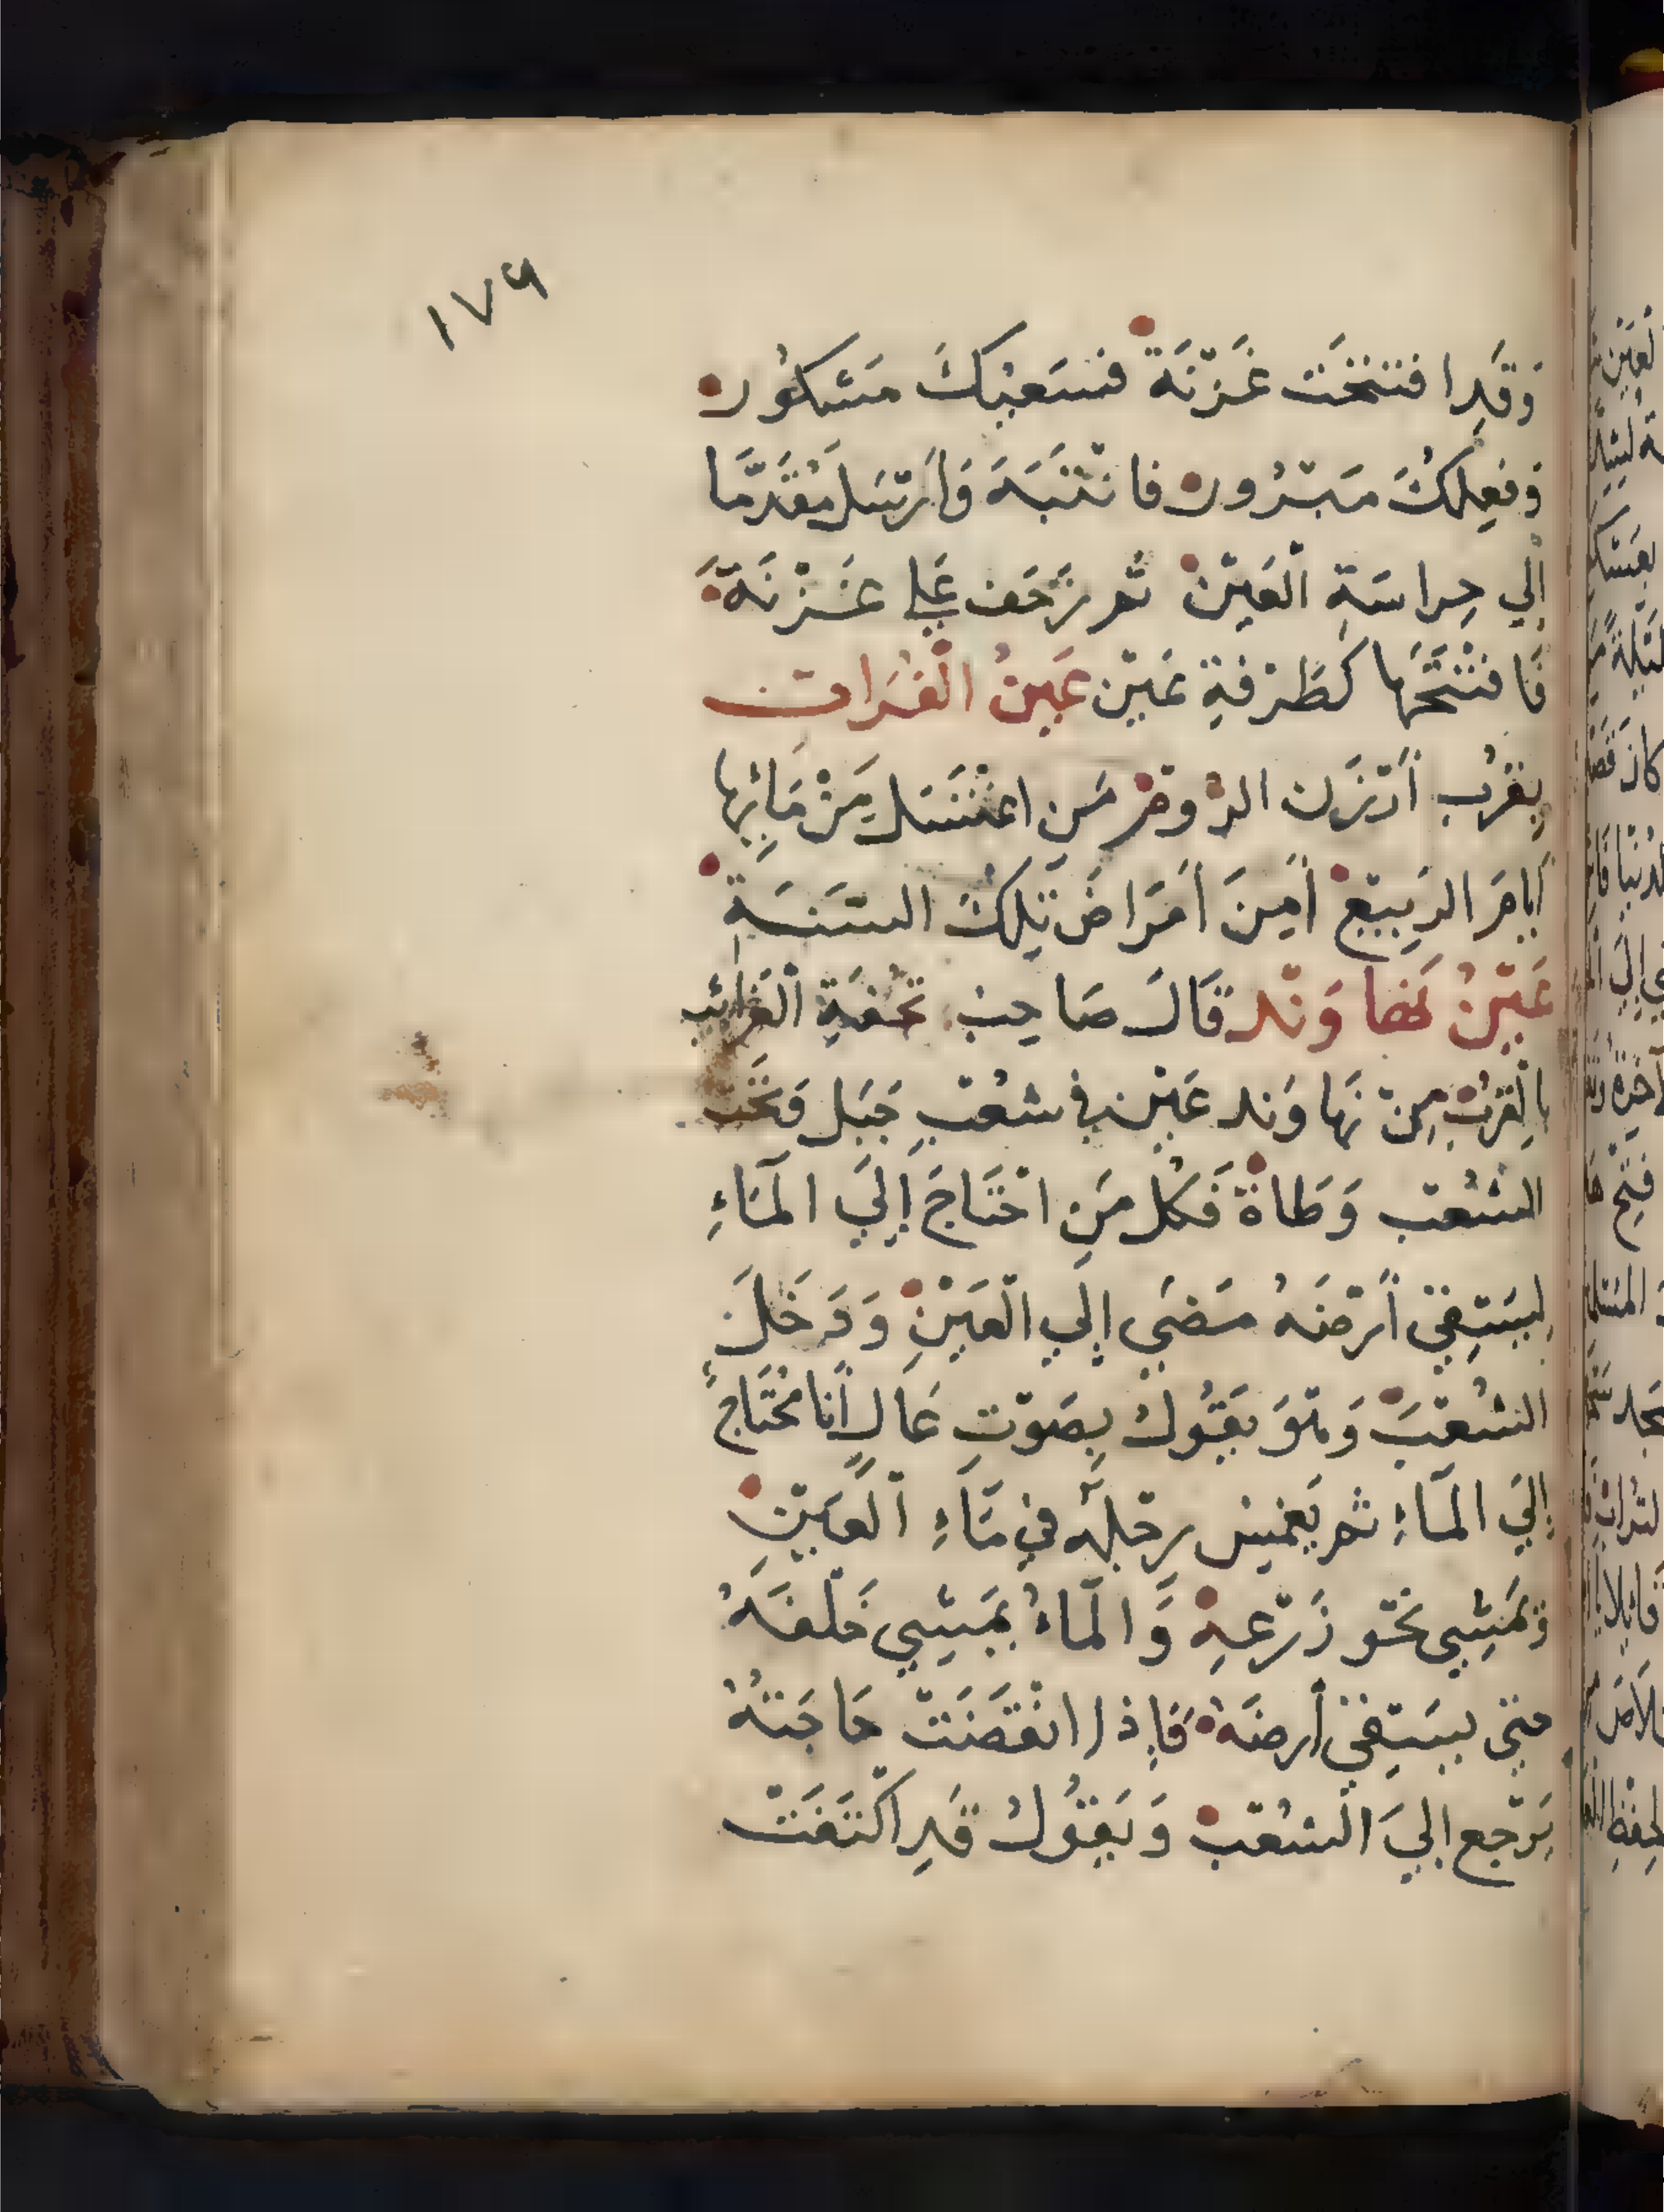 ١٧٩
وَقَدِ افتتحَت غَزنَة فسَعيكَ مَشكُور
وَفعِلكَ مَبرُور فانتَبَهَ وَارسَل مقدَّمًا
إلي حِراسَةِ العَين ثم زحَف عَلي غَزنَة
فَافتَتَحَها كَطَرفةِ عَين عَينُ الفُرات
بِقربِ أرزَن الروم مَن اغتسَل مِن مَائِها
أيامَ الرَبيع أمِنَ أمرَاضَ تِلكَ السَنَةِ
عَينُ نهاوَند قَالَ صَاحِبُ تحفَةِ الغَرائب
بِالقربِ مِن نَهاوَند عَين في شعبِ جَبَل وَتحت
الشعب وَطاة فَكل مَنِ احتَاجَ إلَي المَاءِ
لِيَسقِي أرضَهُ مَضَي إلَي العَين وَدَخلَ
الشعبَ وَهوَ يَقُولُ بِصَوتٍ عَالٍ أنا محتَاجُ
إلَي المَاءِ ثم يَغمِس رِجله فِي مَاءِ العَينِ
وَيَمشِي نحو زَرعِهِ وَالمَاءُ يمشِي خَلفَهُ
حتي يسقِي أرضَهُ فَإذا انقَضَت حَاجَتهُ
يَرجع إليَ الشعب وَيَقُولُ قَدِ اكتَفَت